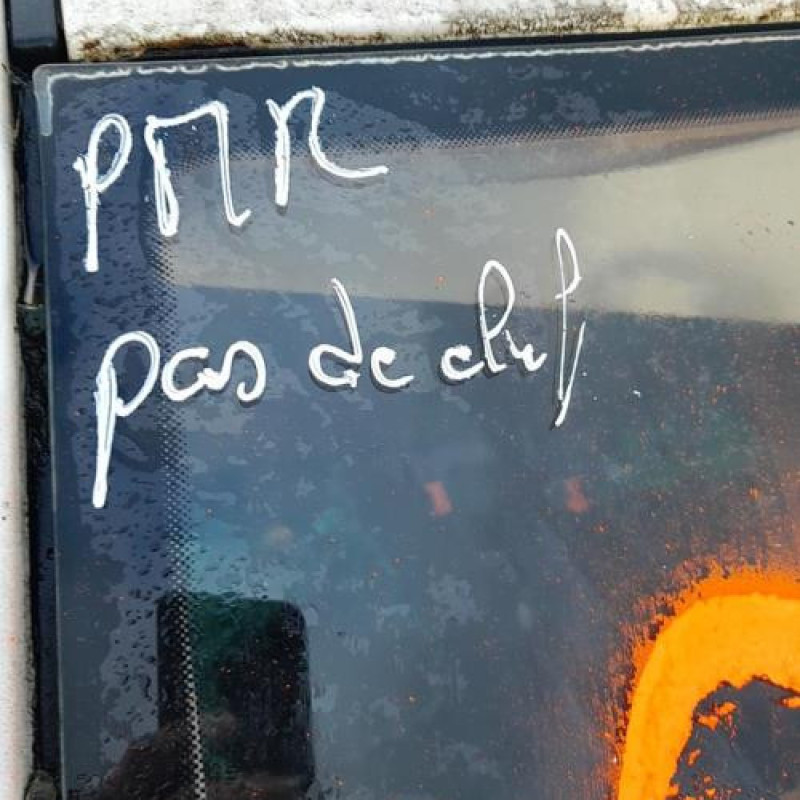 PMR
pas de clef